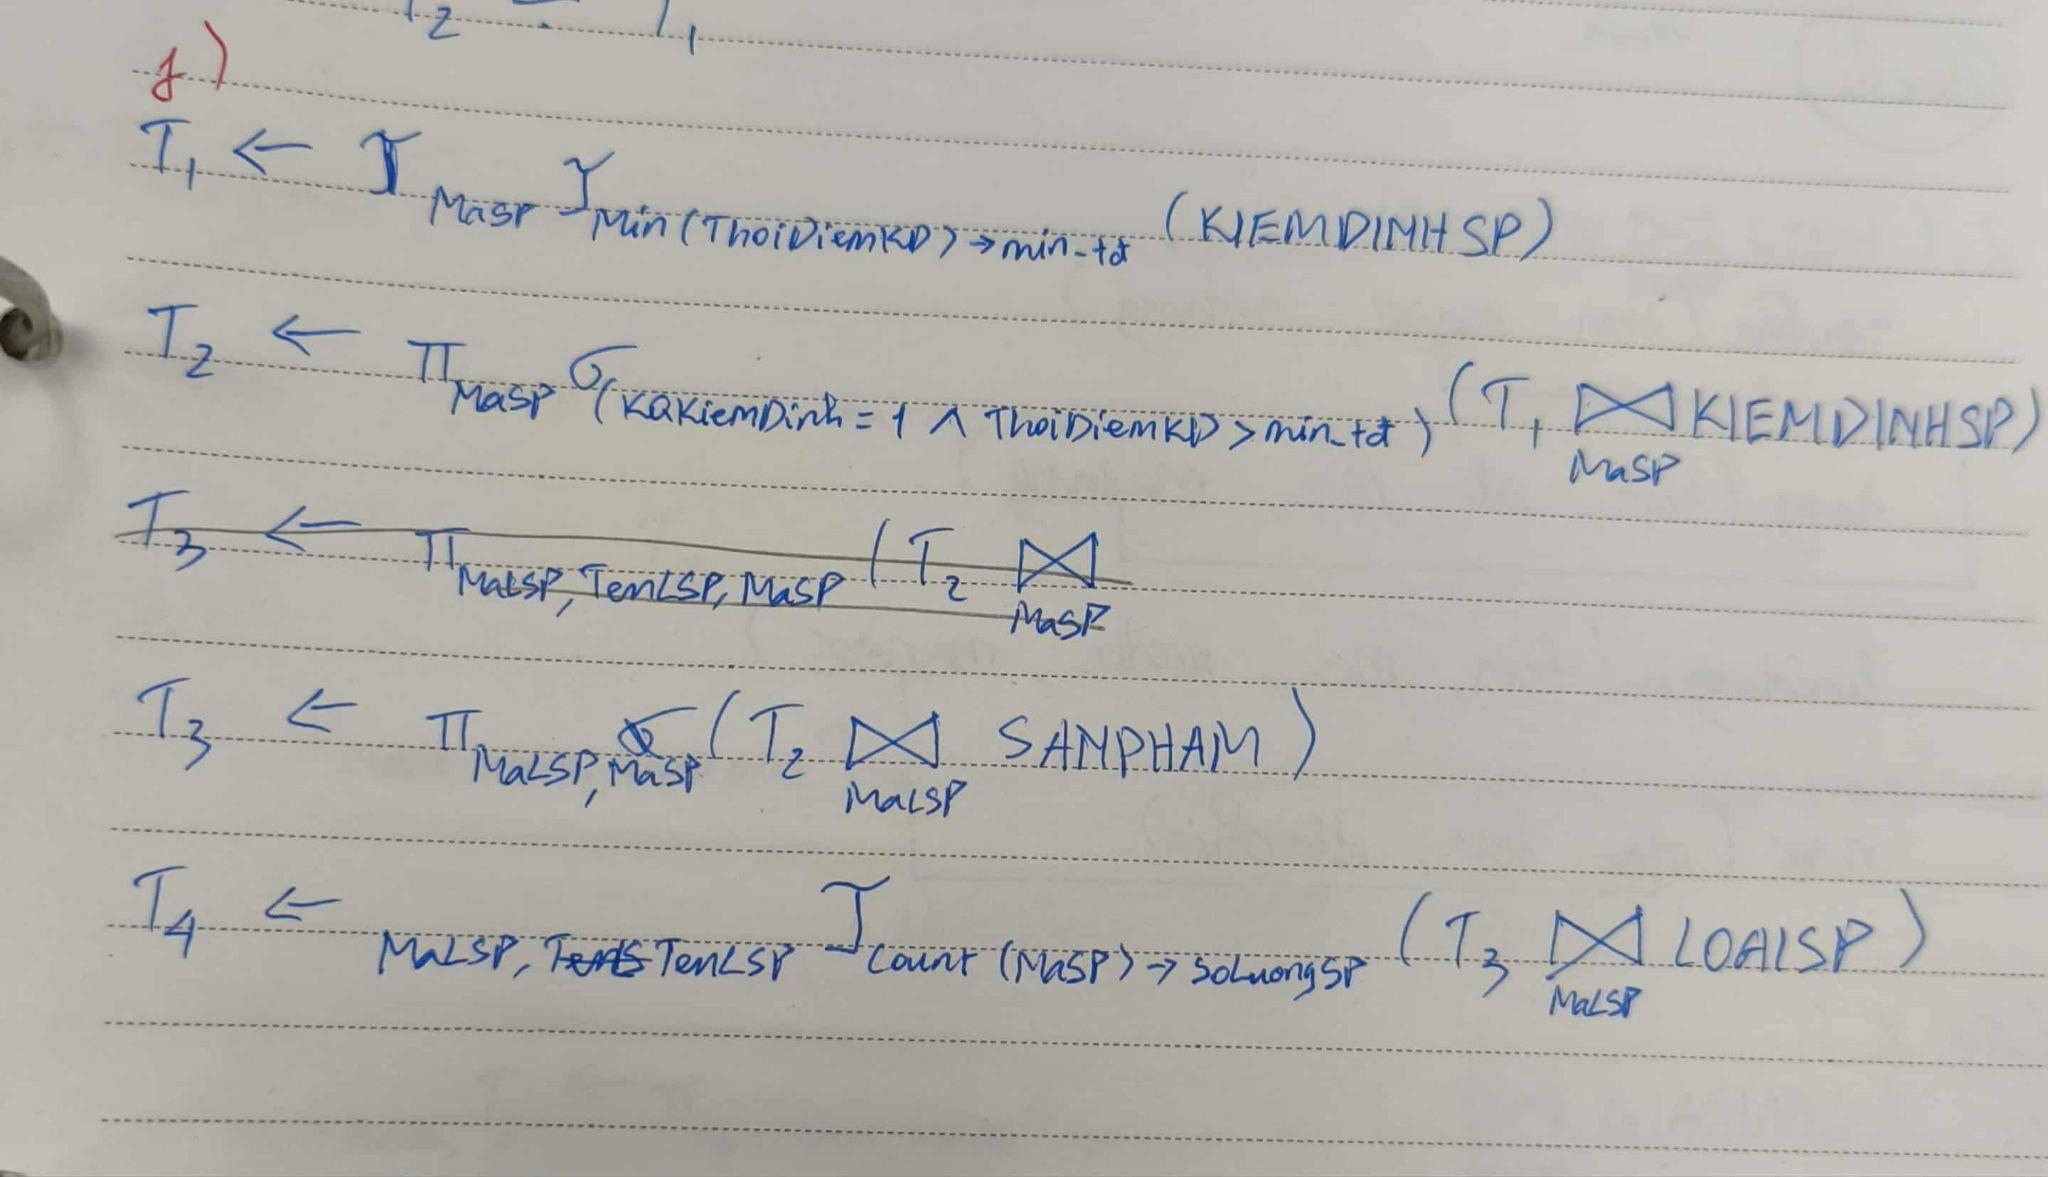 T₂ - T₁
f)
T₁ ← MaSP ℑ Min(ThoiDiemKD)→min_td (KIEMDINHSP)
T₂ ← π MaSP σ (KQKiemDinh = 1 ∧ ThoiDiemKD > min_td) (T₁ ⋈ MaSP KIEMDINHSP)
T₃ ← π MaLSP, TenLSP, MaSP (T₂ ⋈ MaSP
T₃ ← π MaLSP, MaSP (T₂ ⋈ MaLSP SANPHAM)
T₄ ← MaLSP, TenLSP ℑ Count (MaSP) → SoLuongSP (T₃ ⋈ MaLSP LOAISP)